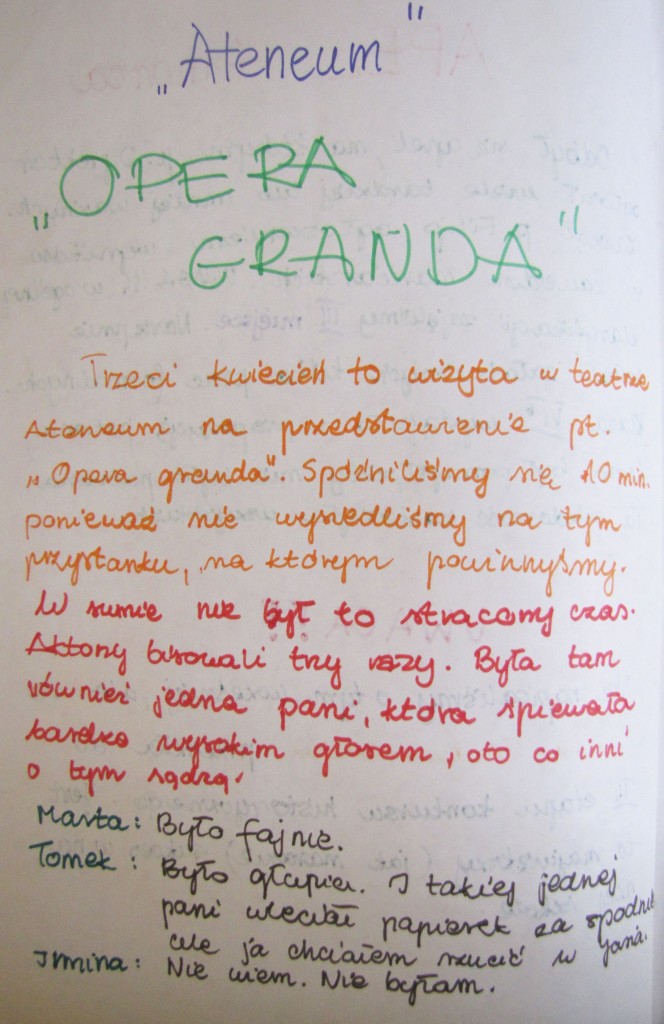 „Ateneum"
„OPERA
GRANDA"
Trzeci kwiecień to wizyta w teatrze
Ateneum na przedstawienie pt.
„Opera granda". Spóźniliśmy się 10 min.
ponieważ nie wysiedliśmy na tym
przystanku, na którym powinnyśmy.
W sumie nie był to stracony czas.
Aktorzy bisowali trzy razy. Była tam
również jedna pani, która śpiewała
bardzo wysokim głosem, oto co inni
o tym sądzą.
Marta: Było fajnie.
Tomek: Było głupio. I takiej jednej
pani wleciał papierek za spodnie
ale ja chciałem rzucić w
Irmina: Nie wiem. Nie byłam.